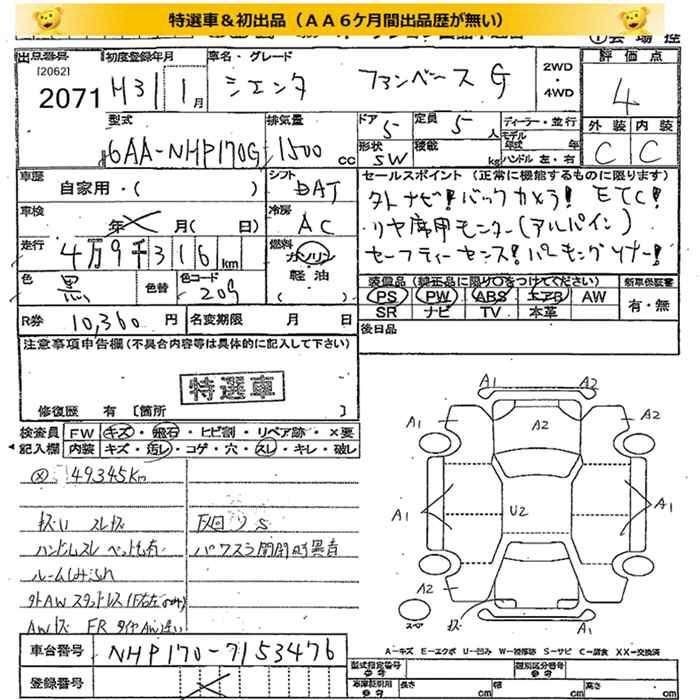 特選車＆初出品（ＡＡ６ケ月間出品歴が無い）
出品番号
[2062]
2071
初度登録年月
H31 1月
車名・グレード
シエンタ ファンベースG
2WD
・
4WD
評価点
4
外装 内装
C C
型式
6AA-NHP170G
排気量
1500 cc
ドア
5
定員
5人
形状
SW
積載
kg
ディーラー・並行
モデル
年式 年
ハンドル 左・右
車歴
自家用・（ ）
シフト
DAT
車検
年 月（ 日）
冷房
AC
走行
4万9千316km
燃料
ガソリン
・
軽油
（ ）
色
黒
色替
色コード
209
R券 10,360円
名変期限 月 日
セールスポイント（正常に機能するものに限ります）
外ナビ！バックカメラ！ETC！
リヤ席用モニター（アルパイン）
セーフティーセンス！パーキングソナー！
装備品（純正品に限り○をつけてください）
新車保証書
PS PW ABS エアB AW
SR ナビ TV 本革
有・無
後日品
注意事項申告欄（不具合内容等は具体的に記入して下さい）
特選車
修復歴 有［箇所 ］
検査員
記入欄
FW キズ・飛石・ヒビ割・リペア跡・×要
内装 キズ・汚レ・コゲ・穴・スレ・キレ・破レ
49345km
ハンドルスレ
パワスラ開閉時異音
外AWスタッドレス
AWキズ FRタイヤAW違い
A1 A2
A1 A2 A2
A1 U2 A1
A2
スペア
キズ
A1
A－キズ E－エクボ U－凹み W－補修跡 S－サビ C－腐食 XX－交換済
車台番号
NHP170-7153476
登録番号
型式指定番号
参考
類別区分番号
参考
車庫証明用
参考
長さ cm
幅 cm
高さ cm